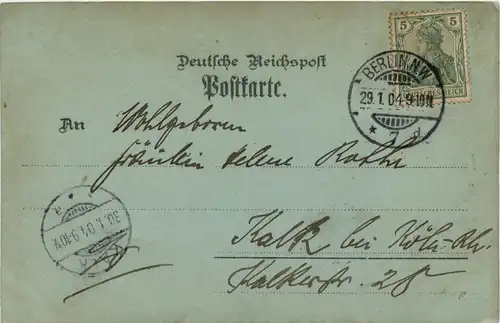 Deutsche Reichspost
Postkarte.
5 5
BERLIN.N.W.
29.1.04.9-10N.
7 d
An Wohlgeboren
Fräulein Helene Rothe
30.1.04.9-10V.
Kalk bei Köln-Rh.
Kalkerstr. 25